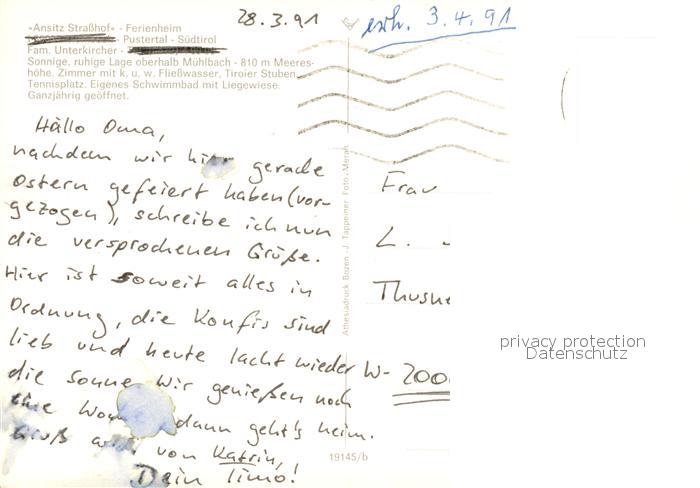 28.3.91
erh. 3.4.91
«Ansitz Straßhof» - Ferienheim
- Pustertal - Südtirol
Fam. Unterkircher -
Sonnige, ruhige Lage oberhalb Mühlbach - 810 m Meeres-
höhe. Zimmer mit k. u. w. Fließwasser, Tiroler Stuben,
Tennisplatz. Eigenes Schwimmbad mit Liegewiese.
Ganzjährig geöffnet.
Hallo Oma,
nachdem wir hier gerade
Ostern gefeiert haben (vor-
gezogen), schreibe ich nun
die versprochenen Grüße.
Hier ist soweit alles in
Ordnung, die Konfis sind
lieb und heute lacht wieder
die Sonne. Wir genießen noch
eine dann geht's heim.
Gruß auch von Katrin,
Dein Timo!
Athesiadruck Bozen - J. Tappeiner Foto - Meran
19145/b
Frau
L.
Thusne
W- 2000
privacy protection
Datenschutz